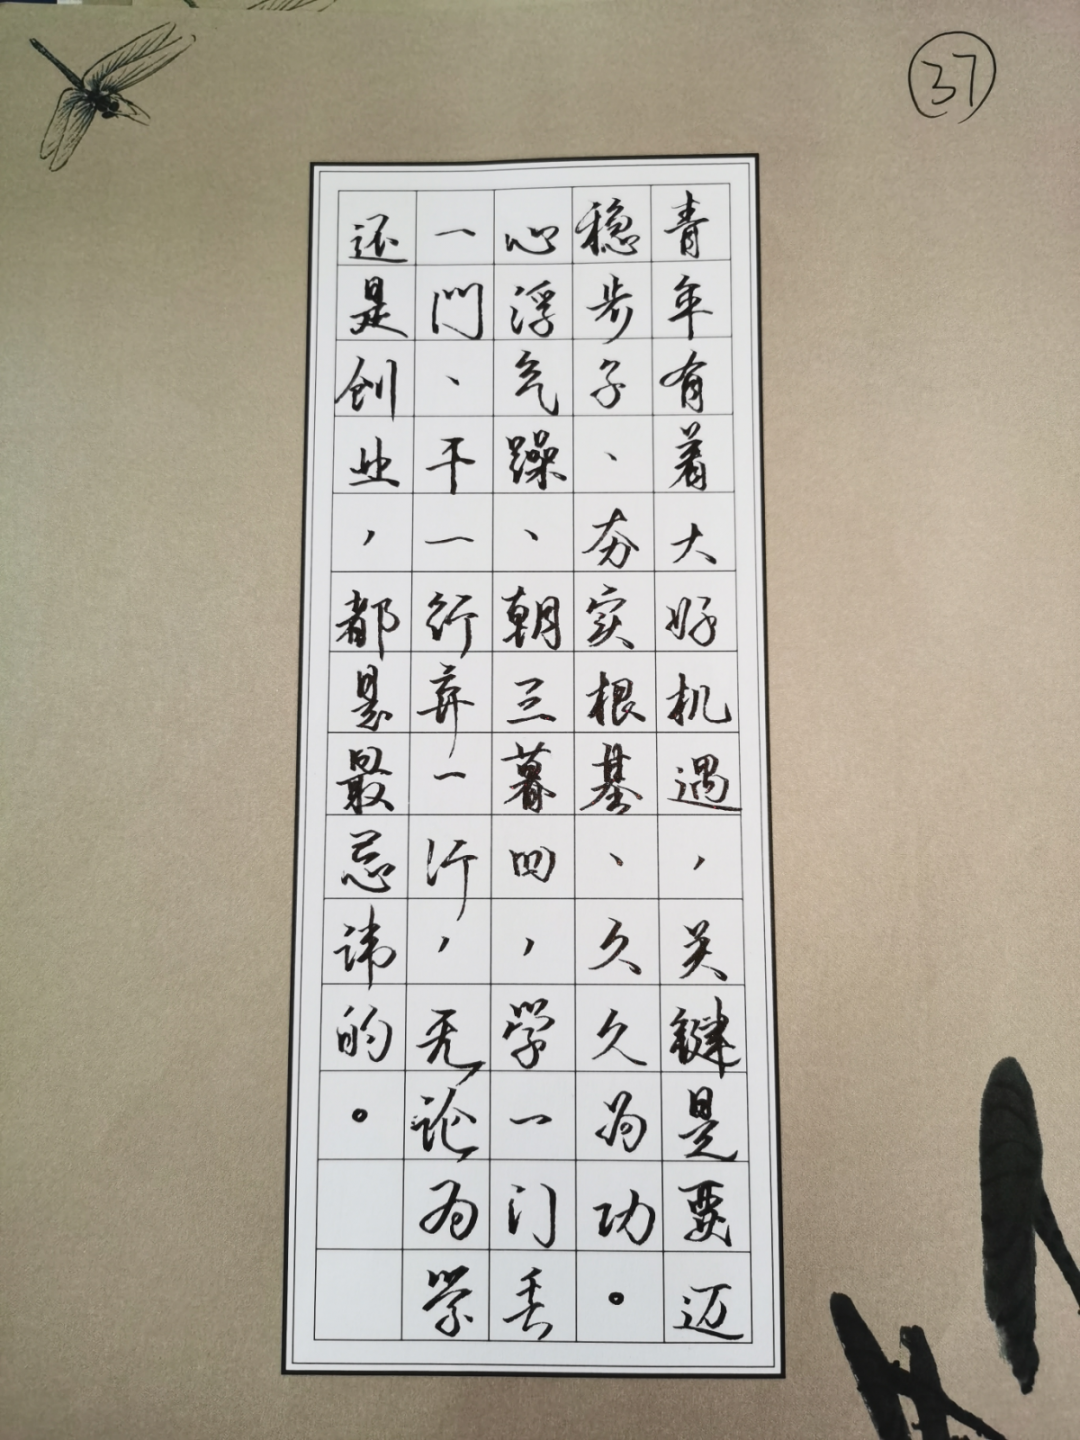 37
青年有着大好机遇，关键是要迈
稳步子、夯实根基、久久为功。
心浮气躁、朝三暮四，学一门丢
一門、干一行弃一行，无论为学
还是创业，都是最忌讳的。